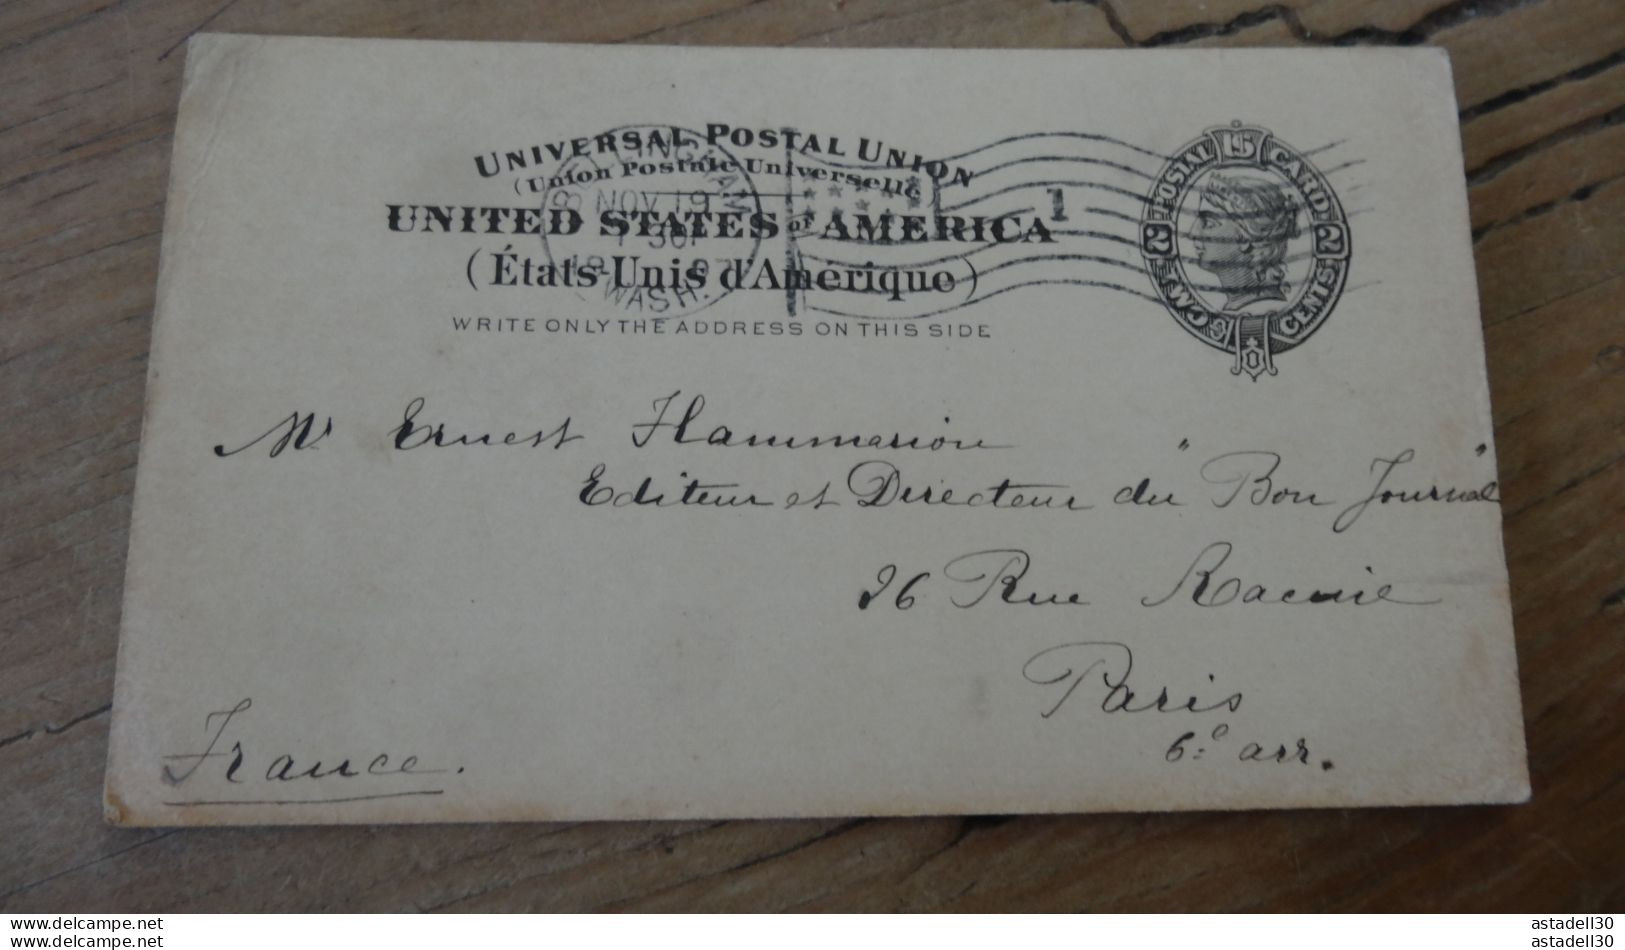 UNIVERSAL POSTAL UNION
(Union Postale Universelle)
UNITED STATES of AMERICA
(États-Unis d'Amérique)
WRITE ONLY THE ADDRESS ON THIS SIDE
NOV 19
WASH.
1
POSTAL CARD
U S
2 2
CENTS CENTS
Mr Ernest Flammarion
Editeur et Directeur du "Bon Journal"
26 Rue Racine
Paris
6e arr.
France.
www.delcampe.net
www.delcampe.net
astadell30
astadell30